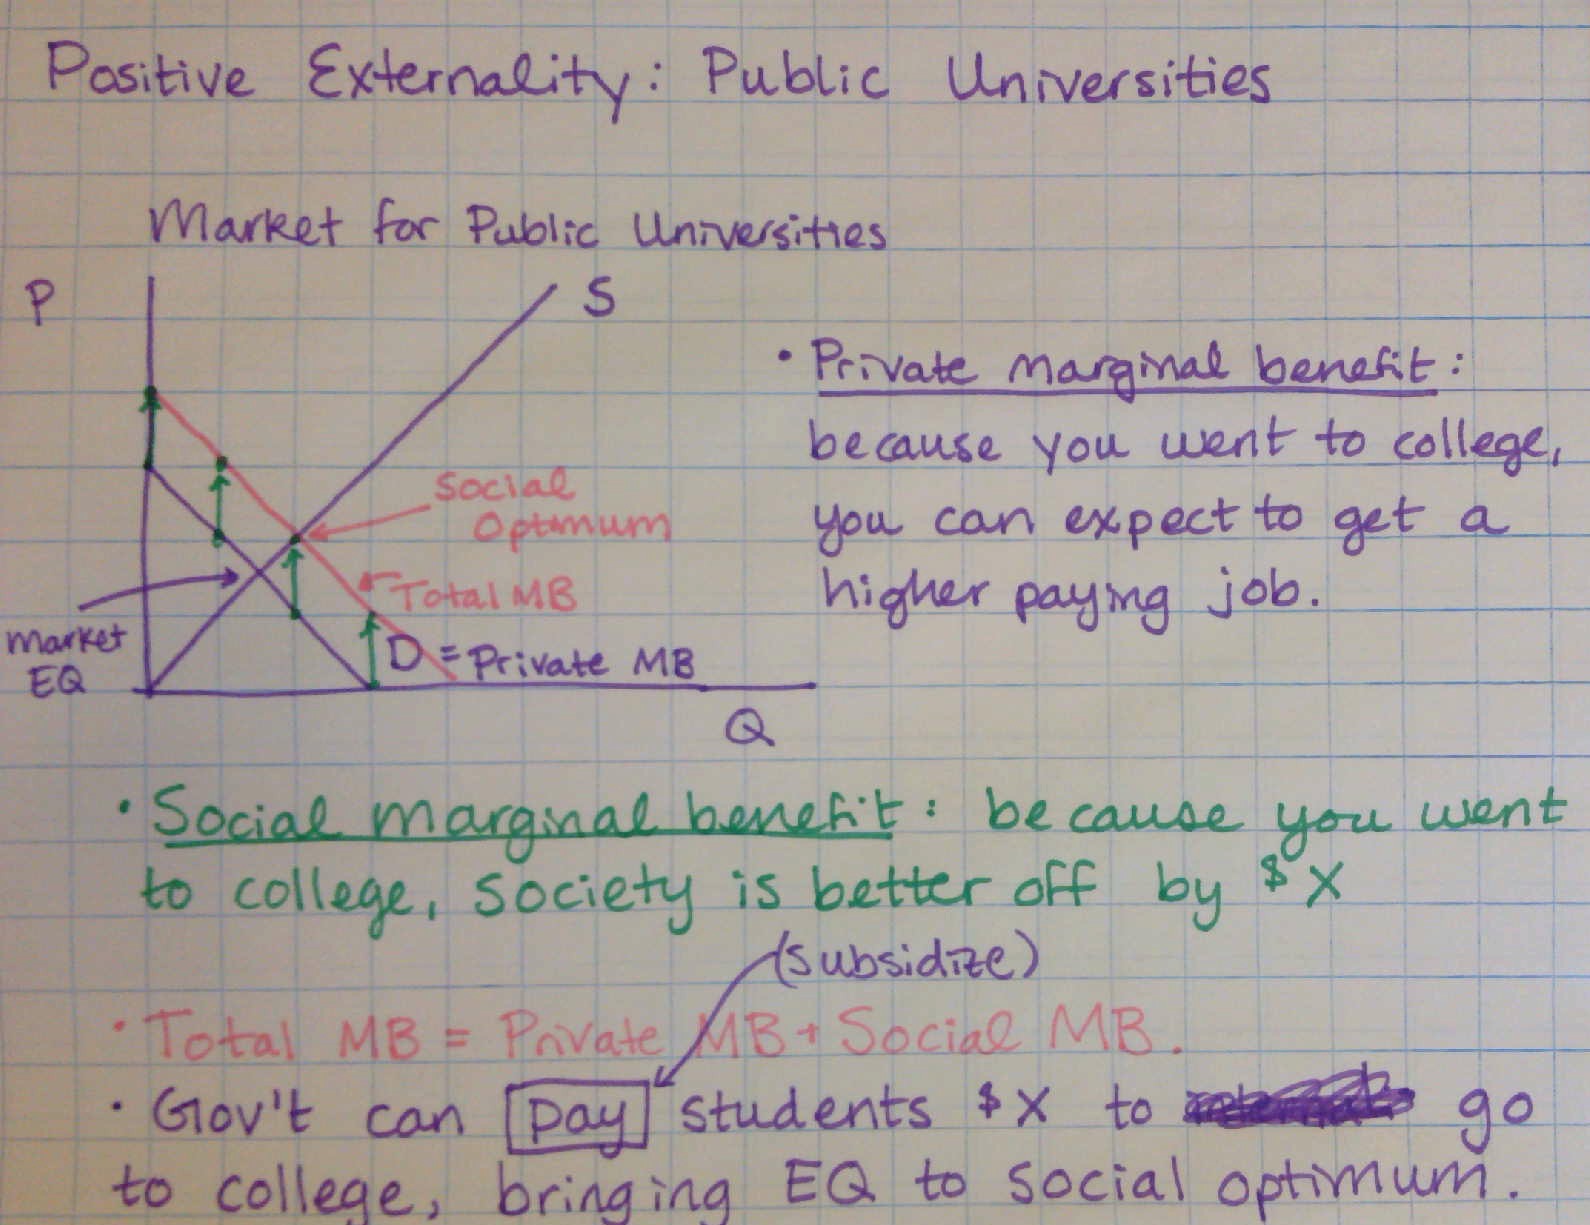 Positive Externality: Public Universities
Market for Public Universities
P
S
Social
Optimum
Total MB
Market
EQ
D = Private MB
Q
• Private marginal benefit:
because you went to college,
you can expect to get a
higher paying job.
• Social marginal benefit: because you went
to college, society is better off by $X
(subsidize)
• Total MB = Private MB + Social MB.
• Gov't can pay students $X to go
to college, bringing EQ to social optimum.